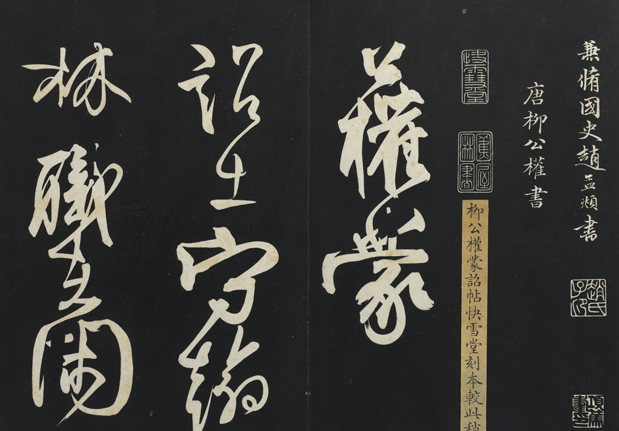 兼脩國史趙孟頫書
趙氏子昂
唐柳公權書
柳公權蒙詔帖快雪堂刻本較此
公權蒙
詔出守翰
林職在閑